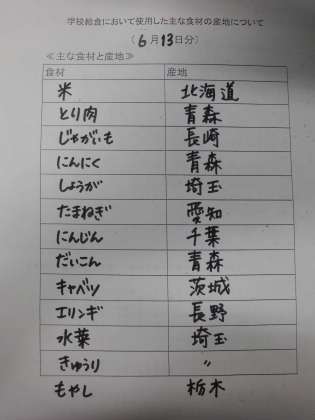 学校給食において使用した主な食材の産地について
(6月13日分)
≪主な食材と産地≫
食材 産地
米 北海道
とり肉 青森
じゃがいも 長崎
にんにく 青森
しょうが 埼玉
たまねぎ 愛知
にんじん 千葉
だいこん 青森
キャベツ 茨城
エリンギ 長野
水菜 埼玉
きゅうり 〃
もやし 栃木